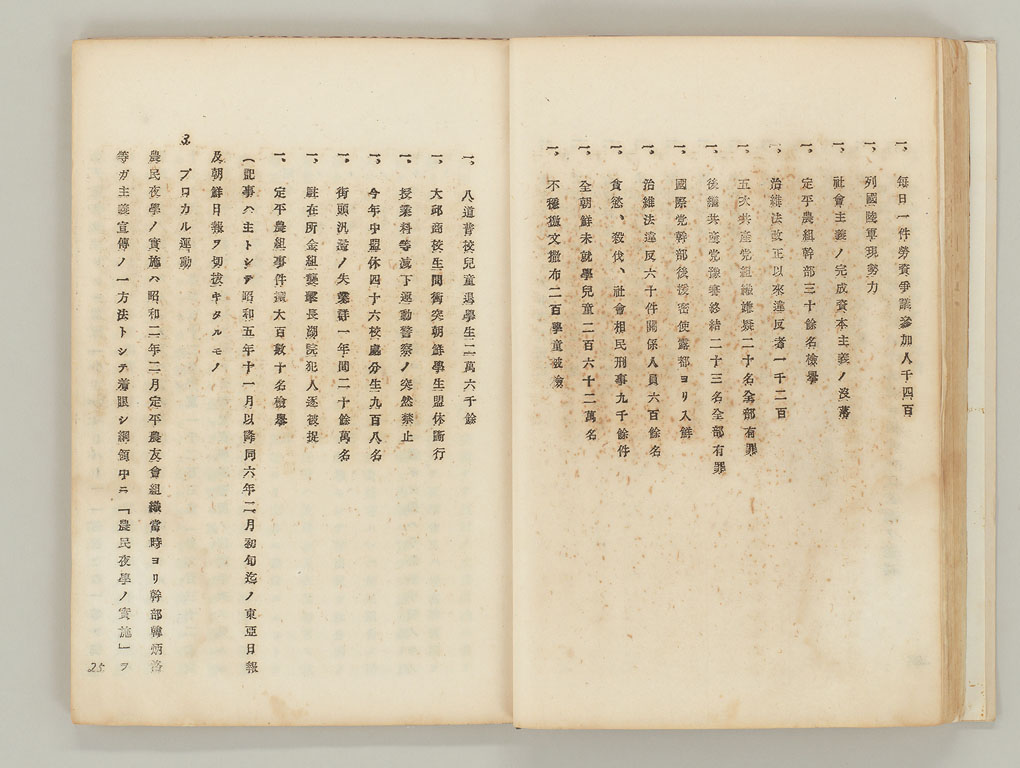 一、每日一件勞資爭議參加人千四百
一、列國陸軍現勢力
一、社會主義ノ完成資本主義ノ沒落
一、定平農組幹部三十餘名檢擧
一、治維法改正以來違反者一千二百
一、五次共産党組織嫌疑二十名全部有罪
一、後繼共産党豫審終結二十三名全部有罪
一、國際党幹部後援密使露都ヨリ入鮮
一、治維法違反六十件關係人員六百餘名
一、貪慾、殺伐、社會相民刑事九千餘件
一、全朝鮮未就學兒童二百六十二萬名
一、不穩檄文撒布二百學童被檢
一、八道普校兒童退學生二萬六千餘
一、大邱商校生間衝突朝鮮學生盟休斷行
一、授業料等減下運動警察ノ突然禁止
一、今年中盟休四十六校處分生九百八名
一、街頭汎濫ノ失業群一年間二十餘萬名
一、駐在所金組襲擊長湖院犯人逐被捉
一、定平農組事件擴大百數十名檢擧
(記事ハ主トシテ昭和五年十一月以降同六年二月初旬迄ノ東亞日報
及朝鮮日報ヲ切拔キタルモノ
3. プロカル運動
農民夜學ノ實施ハ昭和二年二月定平農友會組織當時ヨリ幹部韓炳洛
等ガ主義宣傳ノ一方法トシテ着眼シ綱領中ニ「農民夜學ノ實施」ヲ
25